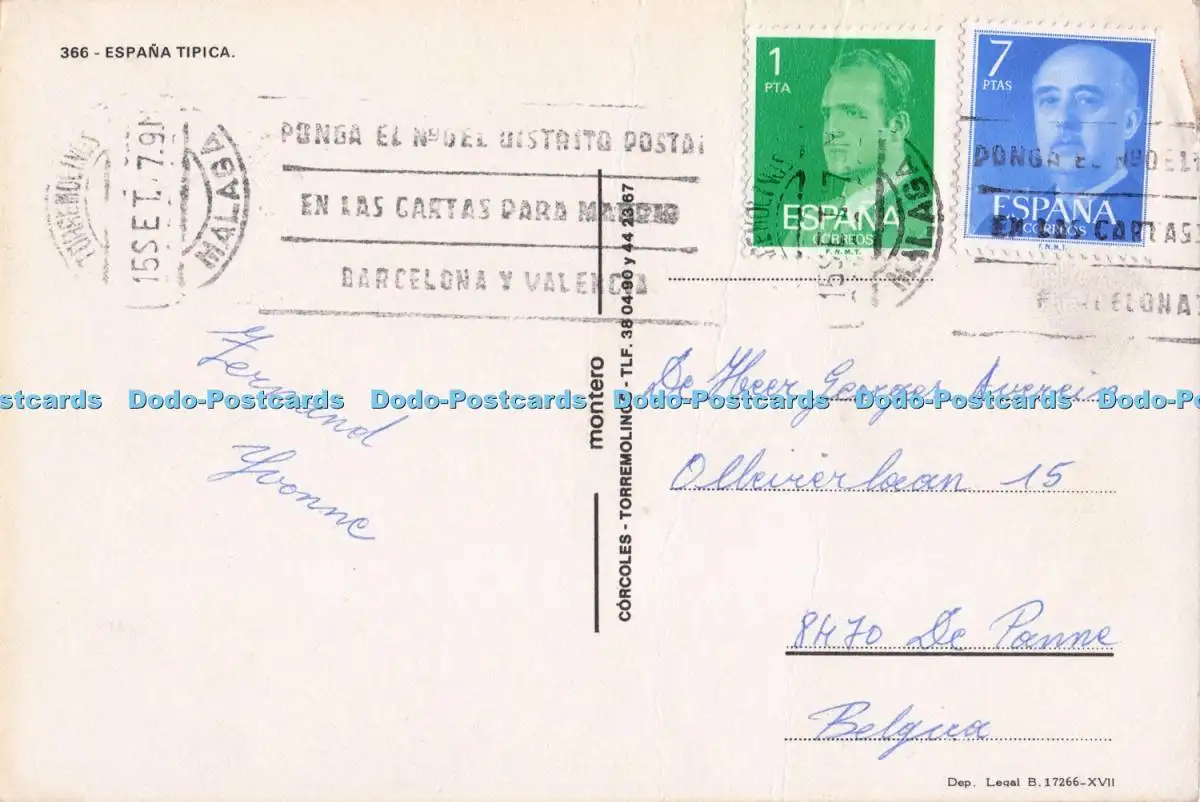 366 - ESPAÑA TIPICA.
TORREMOLINOS
15 SET. 79
MALAGA
PONGA EL Nº DEL DISTRITO POSTAL
EN LAS CARTAS PARA MADRID
BARCELONA Y VALENCIA
1
PTA
ESPAÑA
CORREOS
F.N.M.T.
7
PTAS
ESPAÑA
CORREOS
F.N.M.T.
MALAGA
PONGA EL Nº DEL
EN LAS CARTAS
BARCELONA
Fernand
Yvonne
montero
CÓRCOLES - TORREMOLINOS - TLF. 38 04 90 y 44 23 67
De Heer Georges
Ollevierlaan 15
8470 De Panne
Belgica
Dep. Legal B. 17266-XVII
Dodo-Postcards Dodo-Postcards Dodo-Postcards Dodo-Postcards Dodo-Postcards